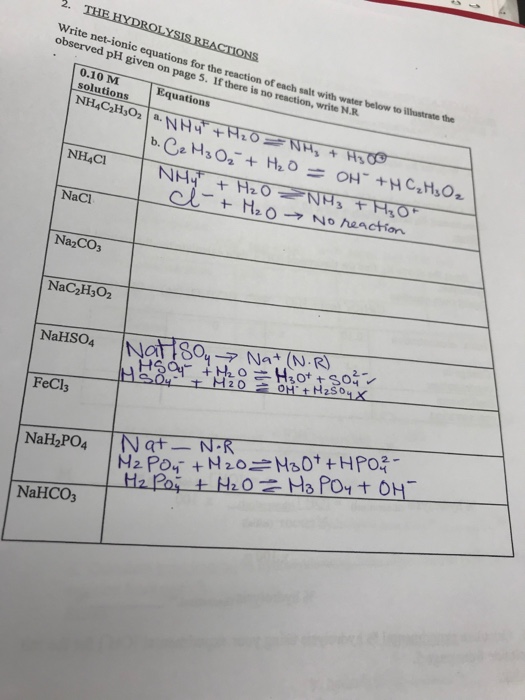 2. THE HYDROLYSIS REACTIONS
Write net-ionic equations for the reaction of each salt with water below to illustrate the
observed pH given on page 5. If there is no reaction, write N.R
0.10 M solutions Equations
NH₄C₂H₃O₂ a. NH₄⁺ + H₂O ⇌ NH₃ + H₃O⊕
b. C₂H₃O₂⁻ + H₂O ⇌ OH⁻ + HC₂H₃O₂
NH₄Cl NH₄⁺ + H₂O ⇌ NH₃ + H₃O⁺
Cl⁻ + H₂O → No reaction
NaCl
Na₂CO₃
NaC₂H₃O₂
NaHSO₄ NaHSO₄ → Na⁺ (N.R)
HSO₄⁻ + H₂O ⇌ H₃O⁺ + SO₄²⁻ ✓
HSO₄⁻ + H₂O ⇌ OH⁻ + H₂SO₄ X
FeCl₃
NaH₂PO₄ Na⁺ — N.R
H₂PO₄⁻ + H₂O ⇌ H₃O⁺ + HPO₄²⁻
H₂PO₄⁻ + H₂O ⇌ H₃PO₄ + OH⁻
NaHCO₃